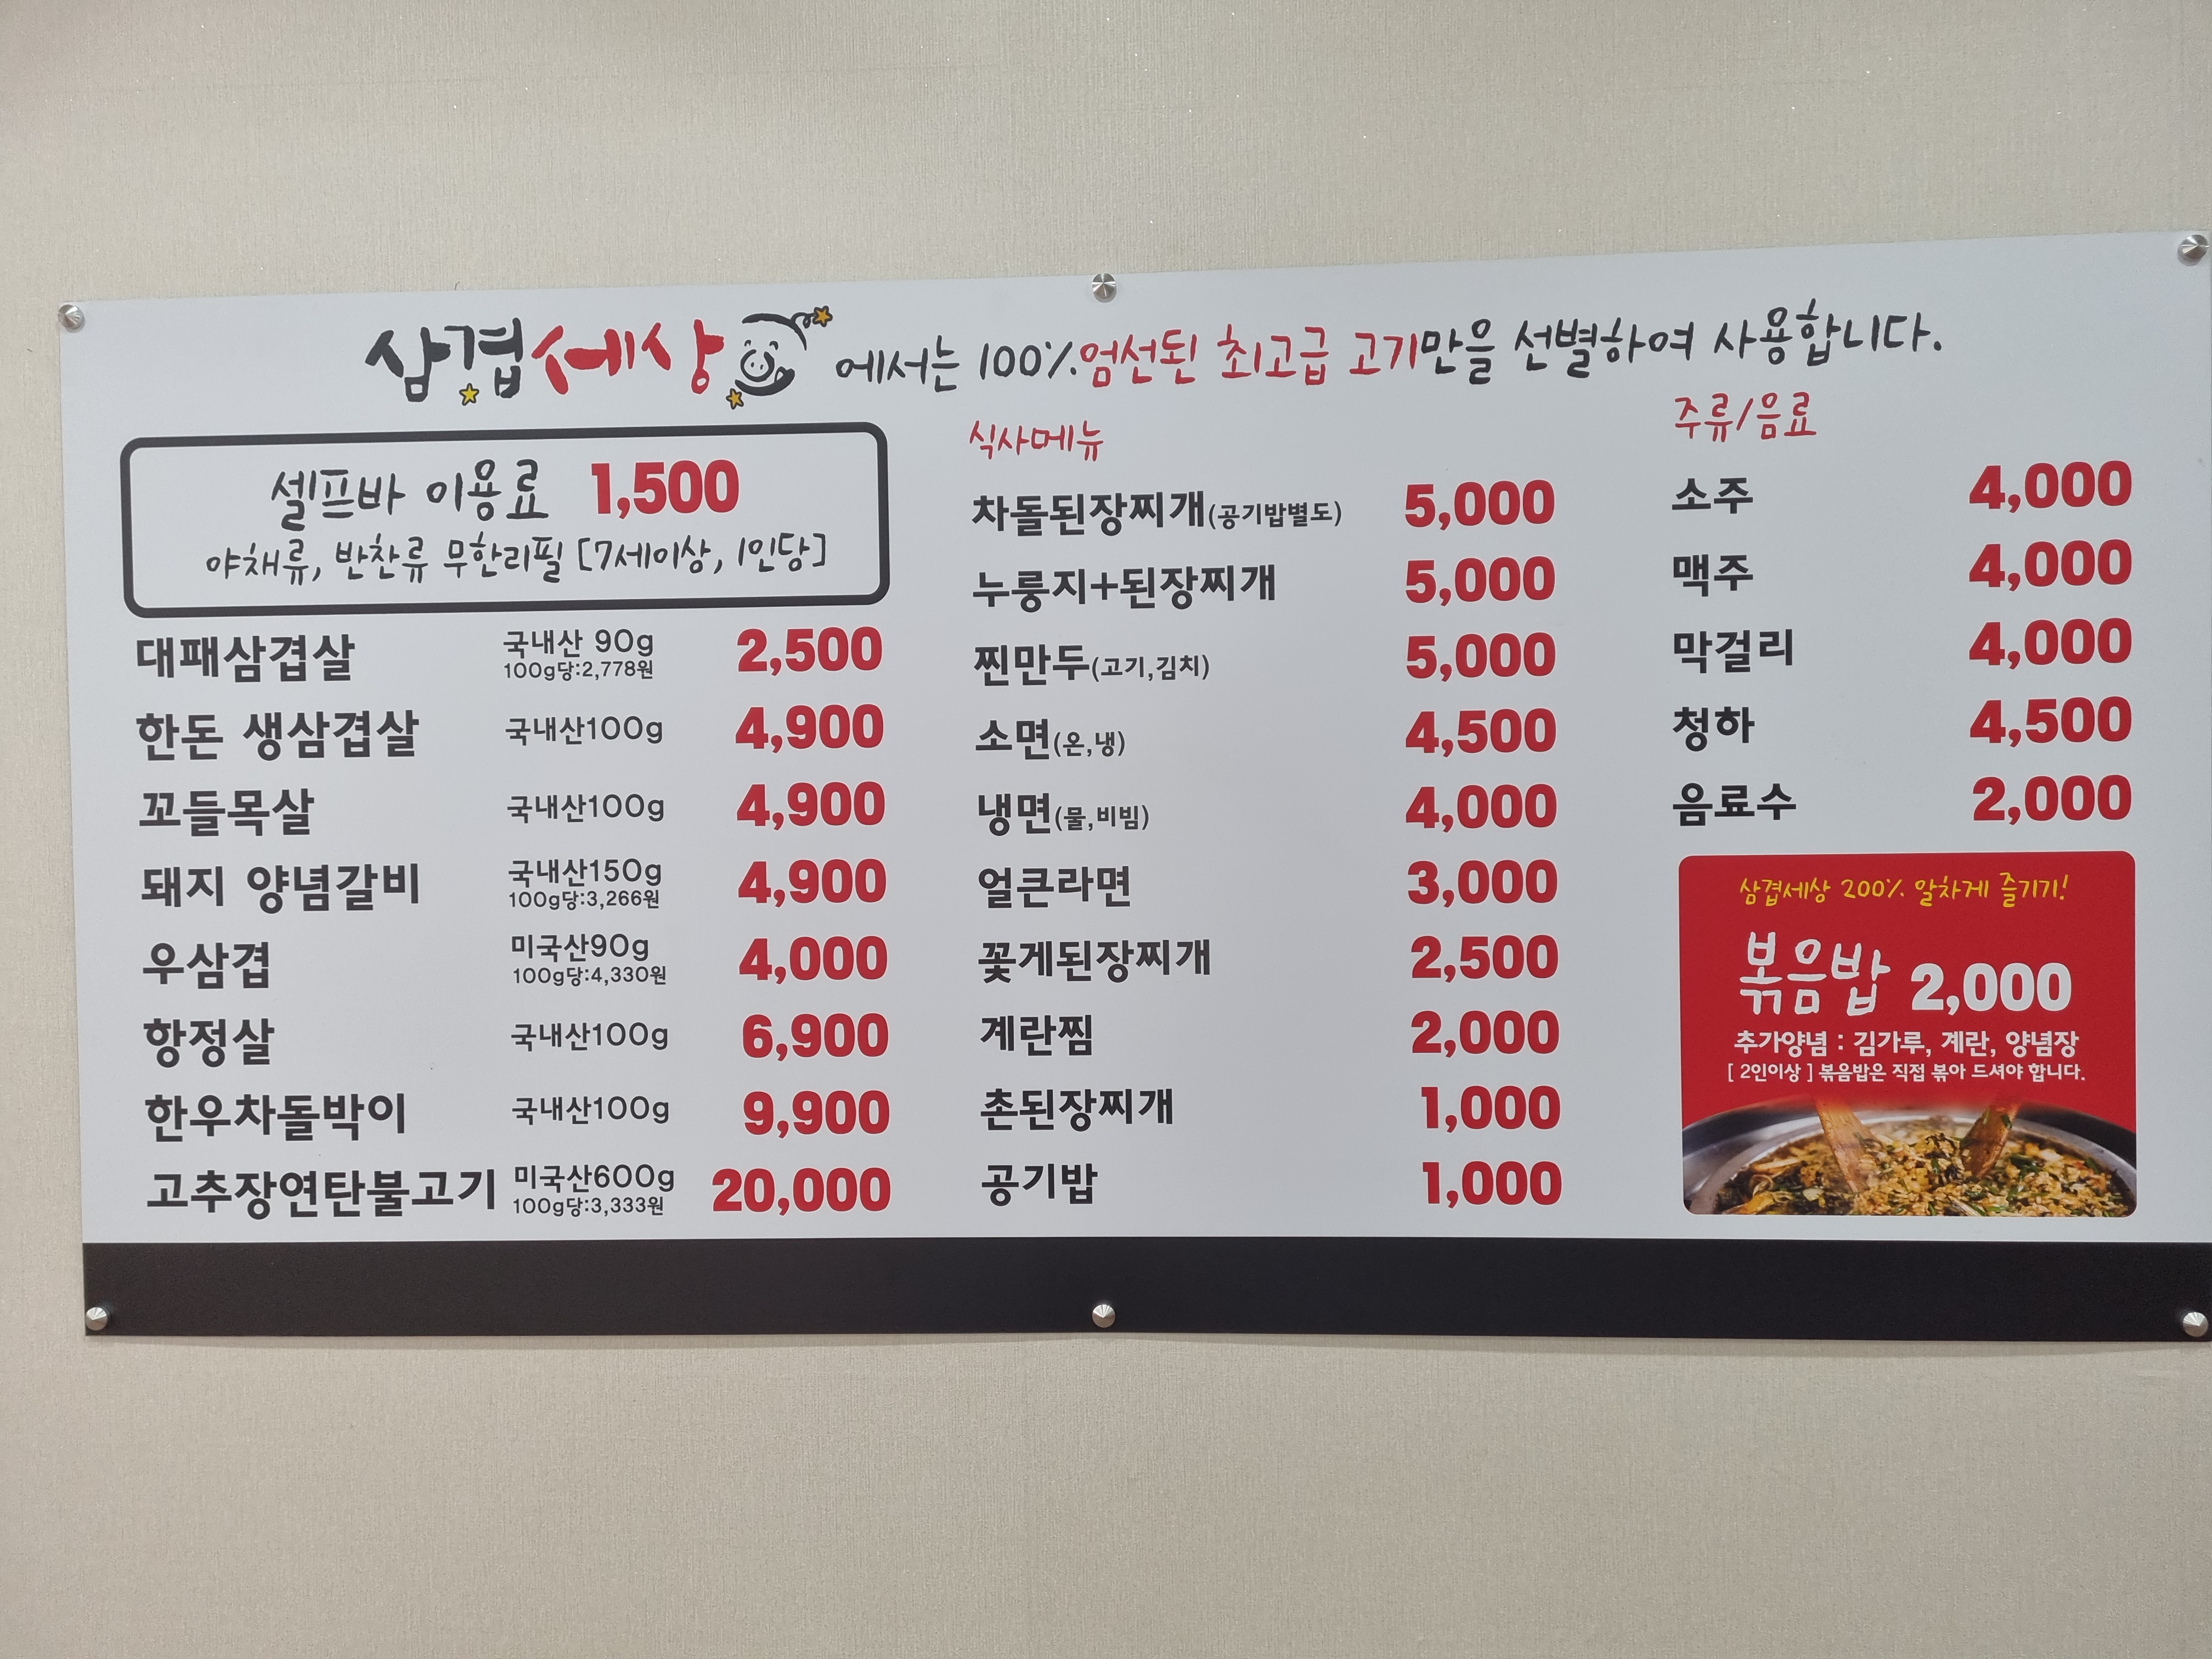 삼겹세상 에서는 100% 엄선된 최고급 고기만을 선별하여 사용합니다.
셀프바 이용료 1,500
야채류, 반찬류 무한리필 [7세이상, 1인당]
대패삼겹살 국내산 90g 2,500
100g당:2,778원
한돈 생삼겹살 국내산100g 4,900
꼬들목살 국내산100g 4,900
돼지 양념갈비 국내산150g 4,900
100g당:3,266원
우삼겹 미국산90g 4,000
100g당:4,330원
항정살 국내산100g 6,900
한우차돌박이 국내산100g 9,900
고추장연탄불고기 미국산600g 20,000
100g당:3,333원
식사메뉴
차돌된장찌개(공기밥별도) 5,000
누룽지+된장찌개 5,000
찐만두(고기,김치) 5,000
소면(온,냉) 4,500
냉면(물,비빔) 4,000
얼큰라면 3,000
꽃게된장찌개 2,500
계란찜 2,000
촌된장찌개 1,000
공기밥 1,000
주류/음료
소주 4,000
맥주 4,000
막걸리 4,000
청하 4,500
음료수 2,000
삼겹세상 200% 알차게 즐기기!
볶음밥 2,000
추가양념 : 김가루, 계란, 양념장
[ 2인이상 ] 볶음밥은 직접 볶아 드셔야 합니다.